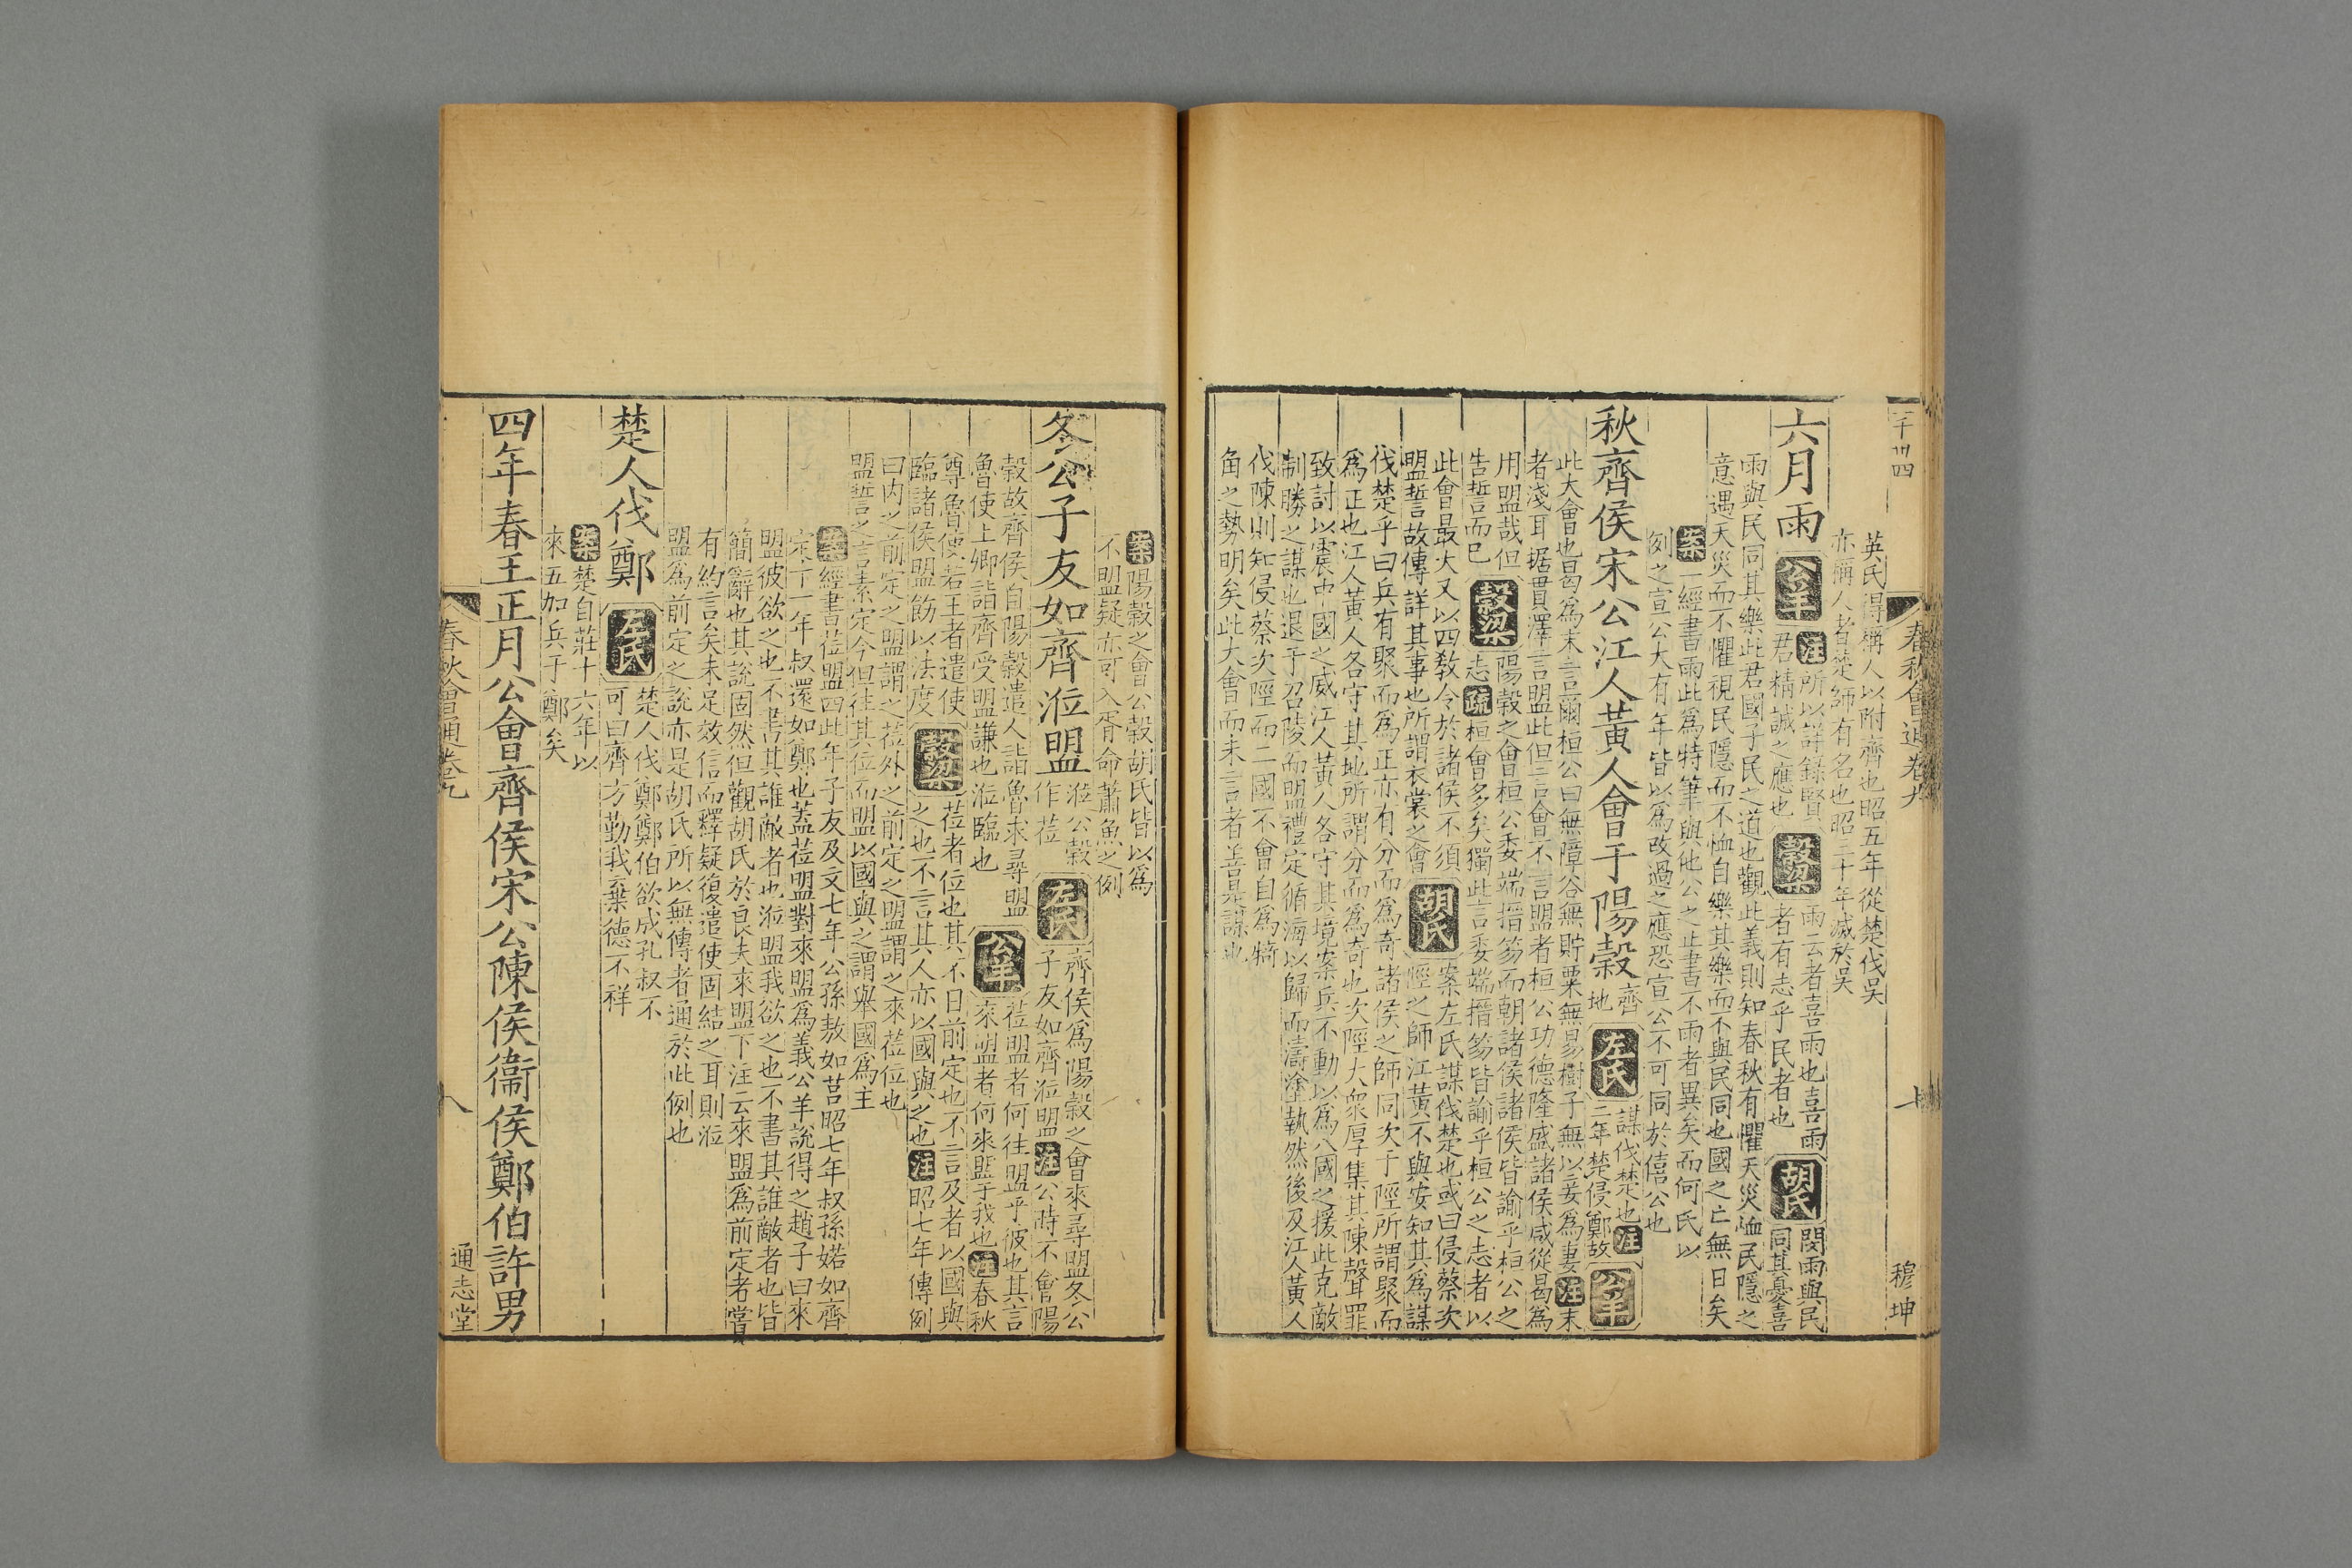 英氏得稱人以附齊也昭五年從楚伐吳
亦稱人者楚師有名也昭三十年滅於吳
六月雨
公羊
注所以詳錄賢
君精誠之應也
穀梁
雨云者喜雨也喜雨
者有志乎民者也
胡氏
閔雨與民
同其憂喜
雨與民同其樂此君國子民之道也觀此義則知春秋有懼天災恤民隱之
意遇天災而不懼視民隱而不恤自樂其樂而不與民同也國之亡無日矣
案一經書雨此為特筆與他公之止書不雨者異矣而何氏以
例之宣公大有年皆以為改過之應恐宣公不可同於僖公也
秋齊侯宋公江人黃人會于陽穀
齊
地
左氏
謀伐楚也注
二年楚侵鄭故
公羊
此大會也曷為末言爾桓公曰無障谷無貯粟無易樹子無以妾為妻注末
者淺耳据貫澤言盟此但言會不言盟者桓公功德隆盛諸侯咸從曷為
用盟哉但
告誓而已
穀梁
陽穀之會桓公委端搢笏而朝諸侯諸侯皆諭乎桓公之
志疏桓會多矣獨此言委端搢笏皆諭乎桓公之志者以
此會最大又以四教令於諸侯不須
盟誓故傳詳其事也所謂衣裳之會
胡氏
案左氏謀伐楚也或曰侵蔡次
陘之師江黃不與安知其為謀
伐楚乎曰兵有聚而為正亦有分而為奇諸侯之師同次于陘所謂聚而
為正也江人黃人各守其地所謂分而為奇也次陘大衆厚集其陳聲罪
致討以震中國之威江人黃人各守其境案兵不動以為八國之援此克敵
制勝之謀也退于召陵而盟禮定循海以歸而濤塗執然後及江人黃人
伐陳則知侵蔡次陘而二國不會自為犄
角之勢明矣此大會而末言者善是謀也
春秋會通卷九
七
穆坤
案陽穀之會公穀胡氏皆以為
不盟疑亦可入胥命蕭魚之例
冬公子友如齊涖盟
涖公穀
作莅
左氏
齊侯為陽穀之會來尋盟冬公
子友如齊涖盟注公時不會陽
穀故齊侯自陽穀遣人詣魯求尋盟
魯使上卿詣齊受盟謙也涖臨也
公羊
莅盟者何往盟乎彼也其言
來盟者何來盟于我也注春秋
尊魯使若王者遣使
臨諸侯盟飭以法度
穀梁
莅者位也其不日前定也不言及者以國與
之也不言其人亦以國與之也注昭七年傳例
曰内之前定之盟謂之莅外之前定之盟謂之來莅位也
盟誓之言素定今但往其位而盟以國與之謂舉國為主
案經書莅盟四此年子友及文七年公孫敖如莒昭七年叔孫婼如齊
定十一年叔還如鄭也蓋莅盟對來盟為義公羊說得之趙子曰來
盟彼欲之也不書其誰敵者也涖盟我欲之也不書其誰敵者也皆
簡辭也其說固然但觀胡氏於良夫來盟下注云來盟為前定者嘗
有約言矣未足效信而釋疑復遣使固結之耳則涖
盟為前定之說亦是胡氏所以無傳者通於此例也
楚人伐鄭
左氏
楚人伐鄭鄭伯欲成孔叔不
可曰齊方勤我棄德不祥
案楚自莊十六年以
來五加兵于鄭矣
四年春王正月公會齊侯宋公陳侯衞侯鄭伯許男
春秋會通卷九
八
通志堂